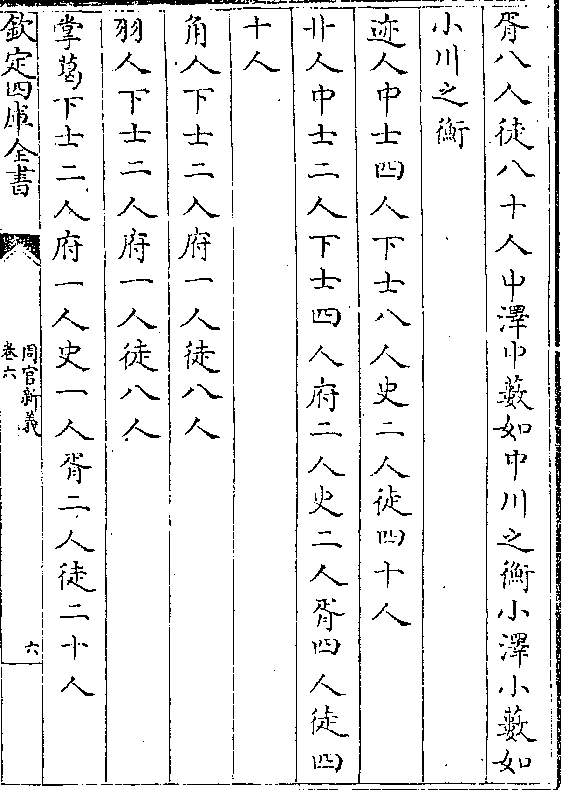 胥八人徒八十人中澤中藪如中川之衡小澤小藪如
小川之衡
迹人中士四人下士八人史二人徒四十人
丱人中士二人下士四人府二人史二人胥四人徒四
十人
角人下士二人府一人徒八人
羽人下士二人府一人徒八人
掌葛下士二人府一人史一人胥二人徒二十人
欽定四庫全書
周官新義
卷六
六